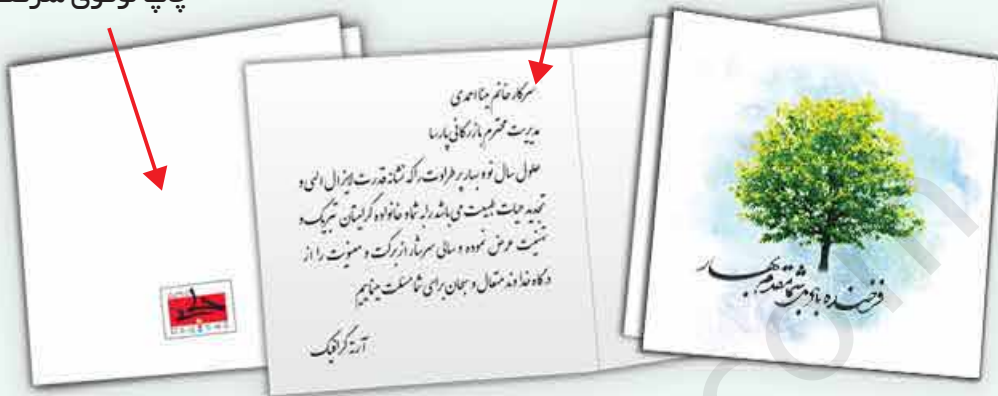 چاپ لوگوی شرکت
سرکار خانم مینا احمدی
مدیریت محترم بازرگانی پارسا
حلول سال نو و بهار پر طراوت را که نشانه قدرت لایزال الهی و
تجدید حیات طبیعت می باشد را به شما و خانواده گرامیتان تبریک و
تهنیت عرض نموده و سالی سرشار از برکت و معنویت را از
درگاه خداوند متعال و سبحان برای شما مسئلت مینماییم
آرته گرافیک
فرخنده باد بر شما مقدم بهار
com